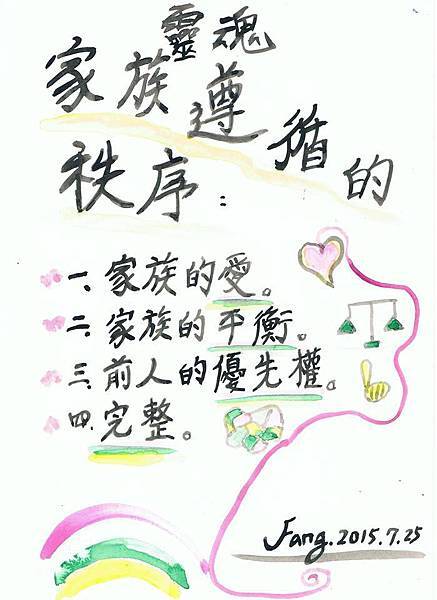 家族靈魂遵循的
秩序：
一、家族的愛。
二、家族的平衡。
三、前人的優先權。
四、完整。
Fang. 2015.7.25